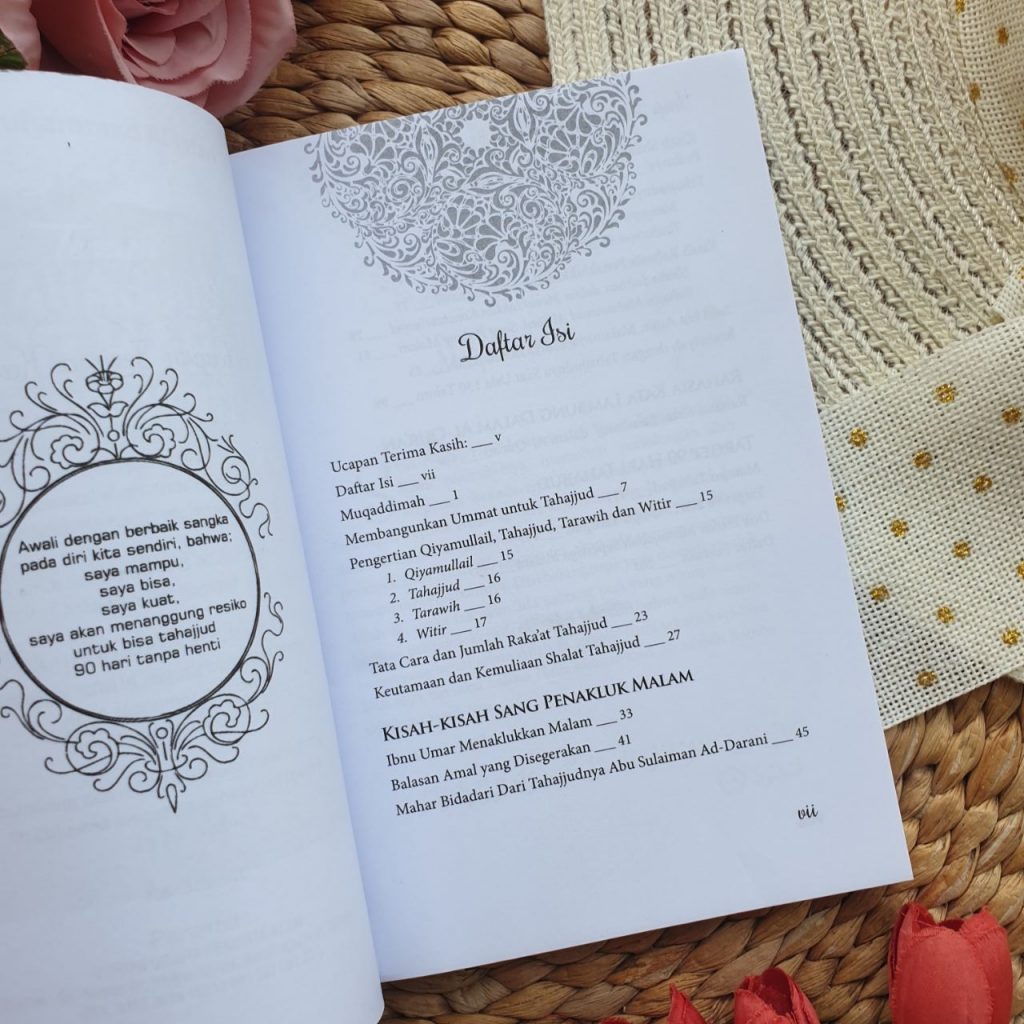 Awali dengan berbaik sangka
pada diri kita sendiri, bahwa:
saya mampu,
saya bisa,
saya kuat,
saya akan menanggung resiko
untuk bisa tahajjud
90 hari tanpa henti
Daftar Isi
Ucapan Terima Kasih: ___ v
Daftar Isi ___ vii
Muqaddimah ___ 1
Membangunkan Ummat untuk Tahajjud ___ 7
Pengertian Qiyamullail, Tahajjud, Tarawih dan Witir ___ 15
1. Qiyamullail ___ 15
2. Tahajjud ___ 16
3. Tarawih ___ 16
4. Witir ___ 17
Tata Cara dan Jumlah Raka'at Tahajjud ___ 23
Keutamaan dan Kemuliaan Shalat Tahajjud ___ 27
KISAH-KISAH SANG PENAKLUK MALAM
Ibnu Umar Menaklukkan Malam ___ 33
Balasan Amal yang Disegerakan ___ 41
Mahar Bidadari Dari Tahajjudnya Abu Sulaiman Ad-Darani ___ 45
vii